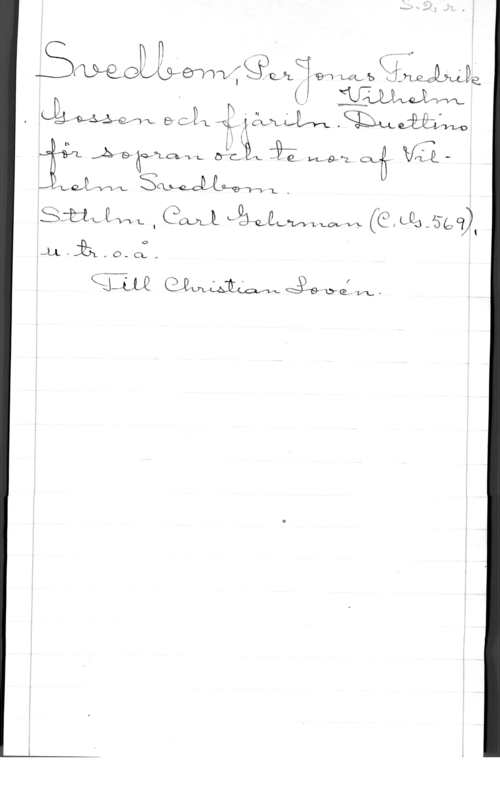 S. 2, r.
Svedbom, Per Jonas Fredrik
Vilhelm
Gossen och fjäriln. Duettino
för sopran och tenor af Vil-
helm Svedbom.
Sthlm, Carl Gehrman (C. G. 569),
u. tr. o. å.
Till Christian Lovén.